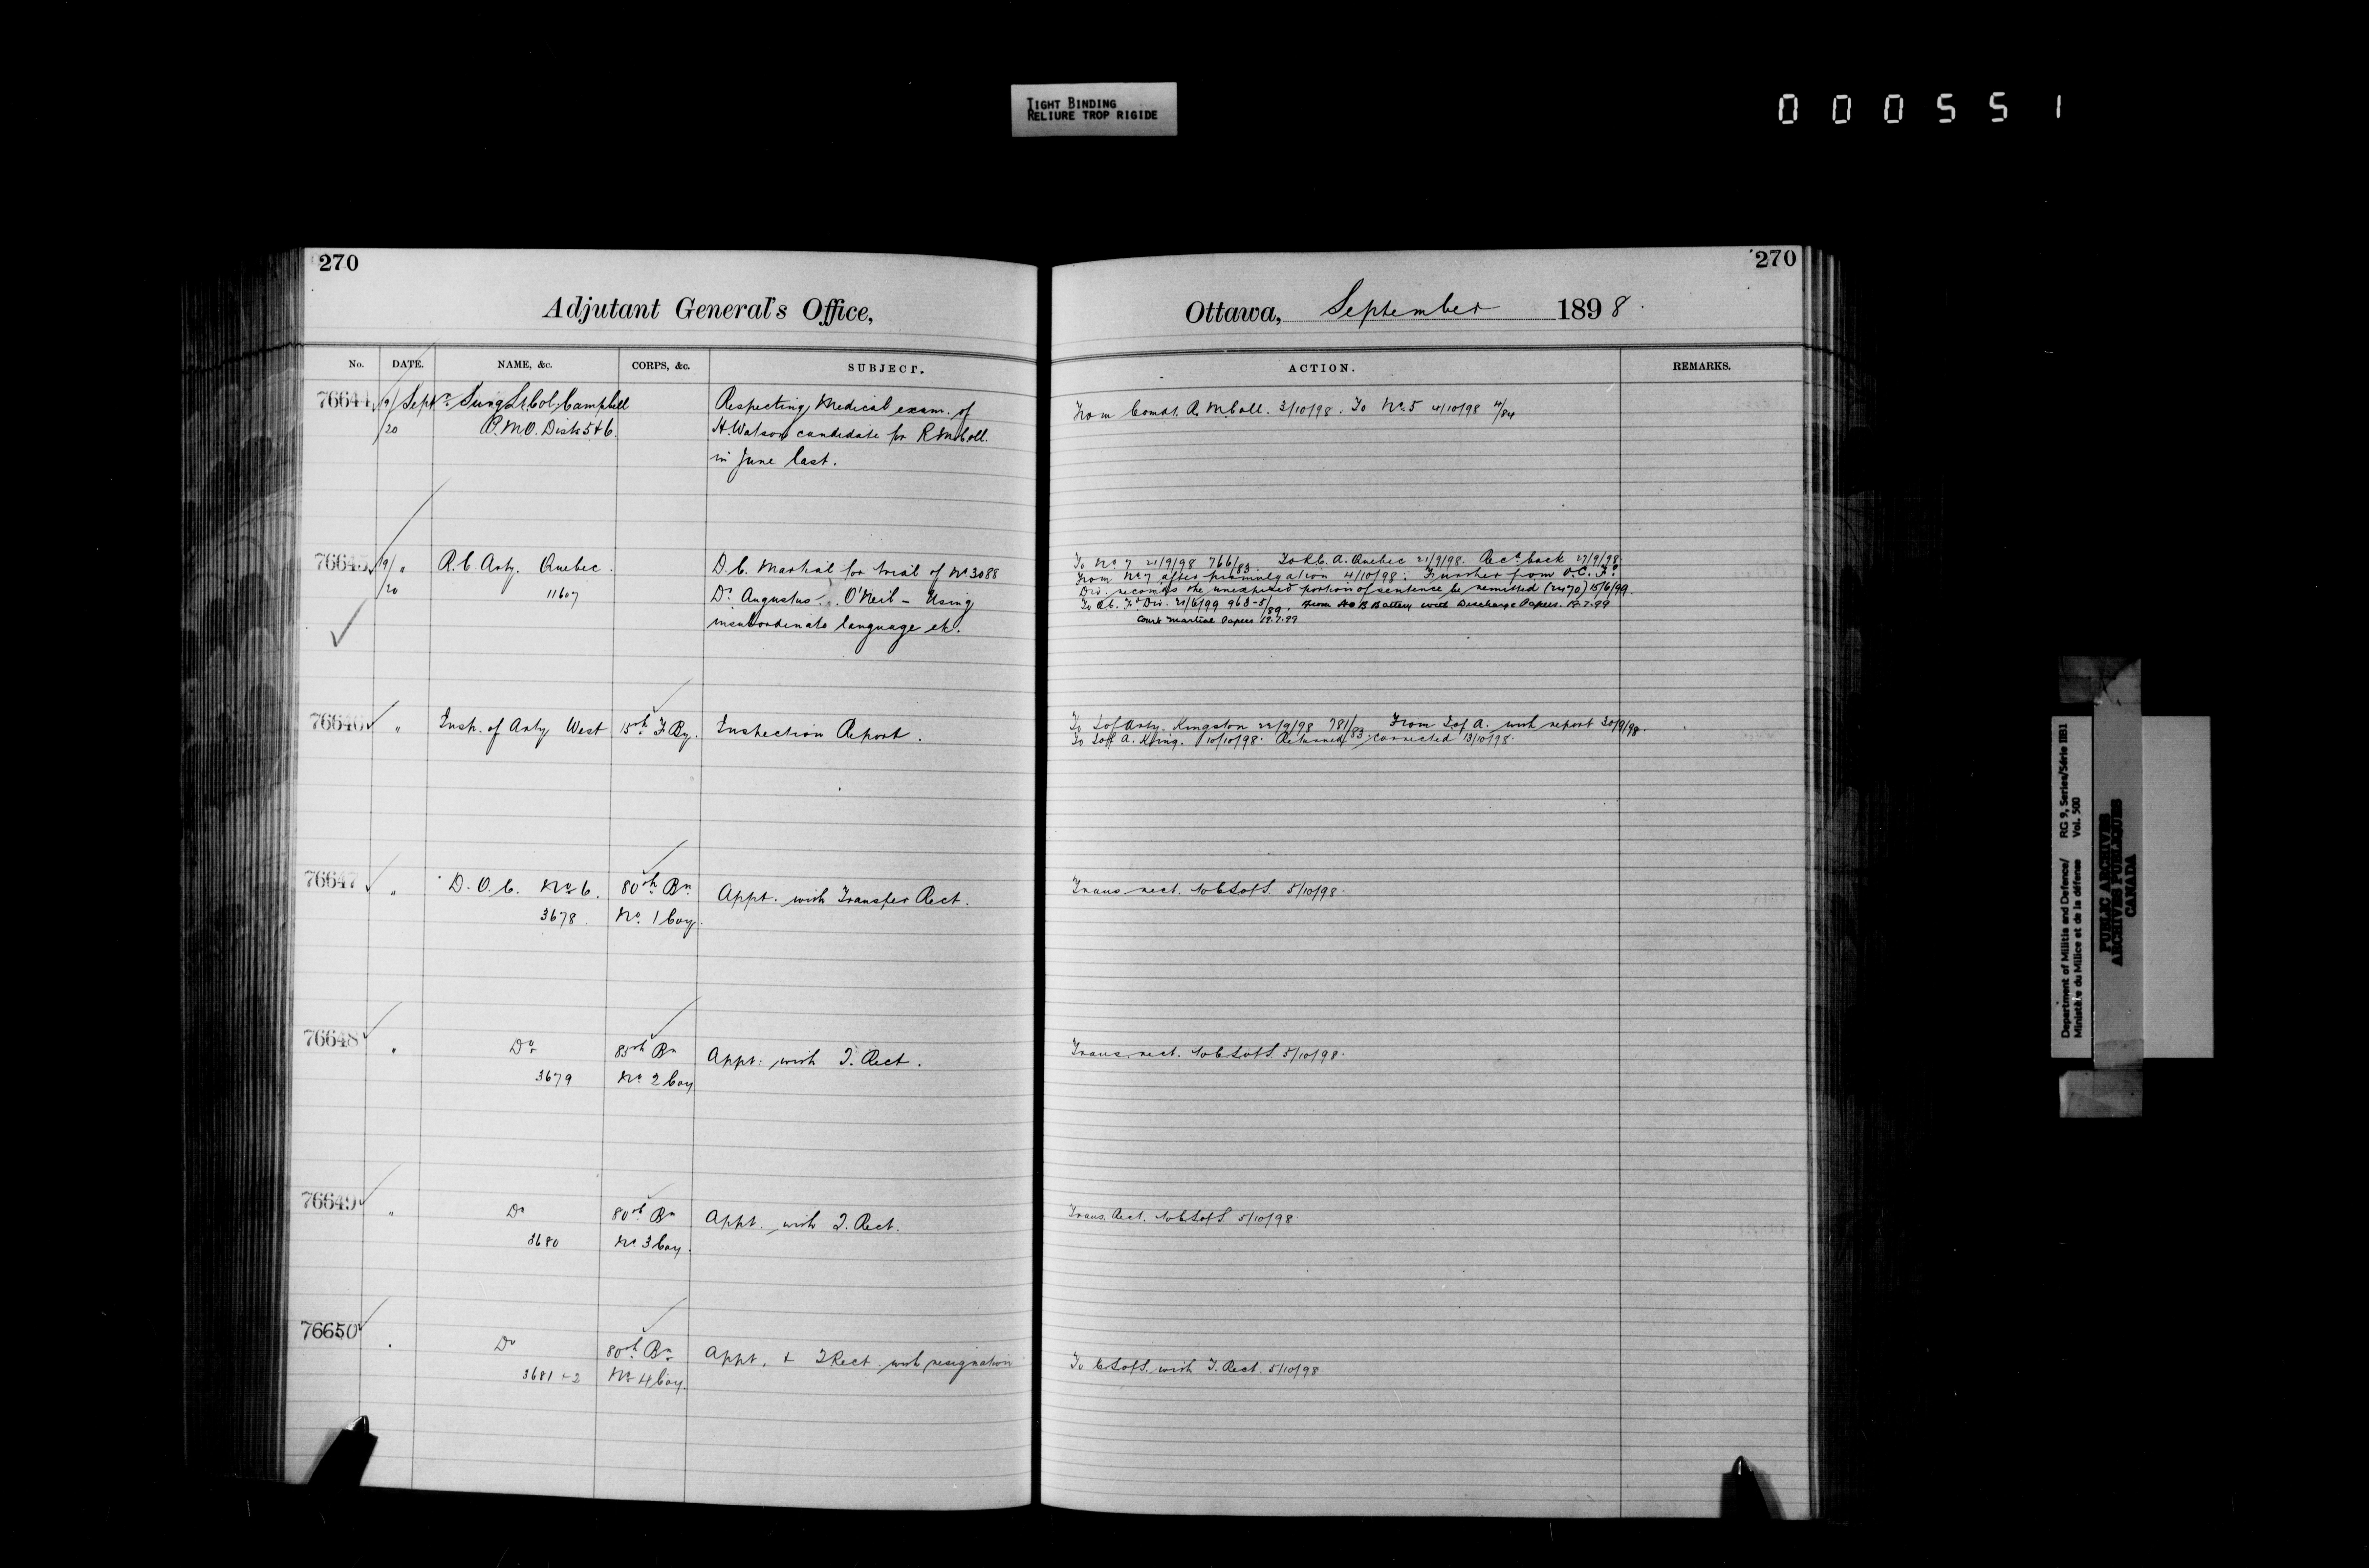 TIGHT BINDING
RELIURE TROP RIGIDE
000551
270
Adjutant General's Office,
No. DATE. NAME, &c. CORPS, &c. SUBJECT.
76644 19/ Sept Surg Lt. Col. Campbell Respecting Medical exam. of
/20 P.M.O. Dists 5 & 6. H. Watson candidate for R M Coll.
in June last.
76645 19/ " R.C. Arty. Quebec. D.C. Martial for trial of No 3088
/20 11607 Dr Augustus O'Neil - Using
insubordinate language etc.
76646 " Insp. of Arty West 15th F By. Inspection Report.
76647 " D.O.C. No 6. 80th Bn Appt. with Transfer Rect.
3678. No. 1 Coy.
76648 " Do 85th Bn Appt. with T. Rect.
3679 No 2 Coy
76649 " Do 80th Bn Appt. with T. Rect.
3680 No 3 Coy.
76650 " Do 80th Bn Appt. & T Rect. with resignation
3681 + 2 No 4 Coy.
270
Ottawa, September 1898.
ACTION. REMARKS.
From Comdt. R. M. Coll. 3/10/98. To No. 5 4/10/98 4/84
To No 7 21/9/98 766/83. To R.C.A. Quebec 21/9/98. Recd back 27/9/98.
From No 7 after promulgation 4/10/98. Further from O.C. Fd
Div. recomds the unexpired portion of sentence be remitted (2470) 15/6/99.
To O.C. Fd Div. 21/6/99 968-5/89. From No B Battery with Discharge Papers. 19.7.99
Court Martial Papers 19.7.99
To I of Arty. Kingston 22/9/98 781/83. From I of A. with report 30/9/98.
To I of A. King. 10/10/98. Returned corrected 13/10/98.
Trans rect. to C S of S. 5/10/98.
Trans. rect. to C S of S. 5/10/98.
Trans. Rect. to C S of S. 5/10/98.
To C S of S. with T. Rect. 5/10/98
Department of Militia and Defence/ RG 9, Series/Série IIB1
Ministère du Milice et de la défense Vol. 500
PUBLIC ARCHIVES
ARCHIVES PUBLIQUES
CANADA